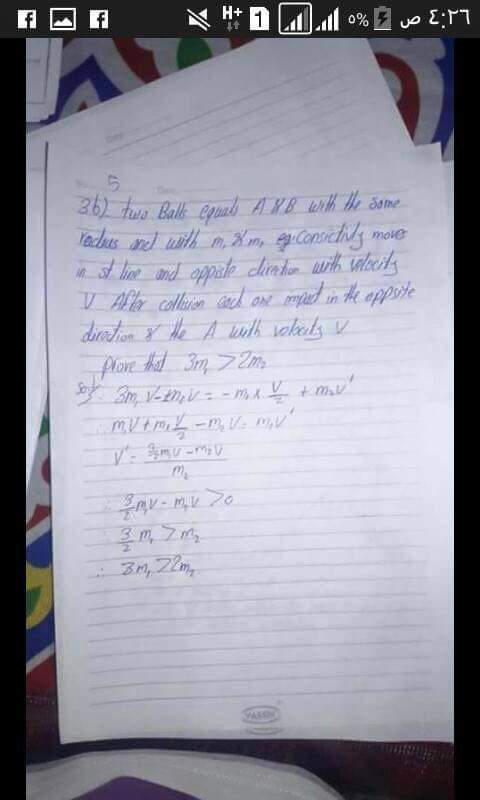 H+ 1 ٥% ٤:٢٦ ص
5
3b) two Balls equals A & B with the same
radius and with m₁ & m₂ consictivly moves
in st line and oppiste direction with velocity
V After collision each one impact in the oppsite
direction & the A with velocity V
prove that 3m₁ > 2m₂
3m₁V - m₂V = -m₁ × V/2 + m₂V'
∴ m₁V + m₁ V/2 - m₂V = m₂V'
V' = (3/2 m₁V - m₂V) / m₂
∴ 3/2 m₁V - m₂V > 0
∴ 3/2 m₁ > m₂
∴ 3m₁ > 2m₂
YASSIN